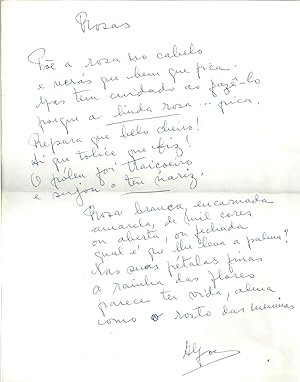 Rosas
Põe a rosa no cabelo
e verás que bem que fica.
Mas tem cuidado ao fazê-lo
porque a linda rosa... pica.
Repara que belo cheiro!
Ai que tolice que fiz!
O pólen foi traiçoeiro
e sujou-o teu nariz.
Rosa branca, encarnada
amarela, de mil cores
ou aberta, ou fechada
qual é que lhe leva a palma?
Nas suas pétalas finas
a rainha das flores
parece ter vida, alma
como o rosto das meninas